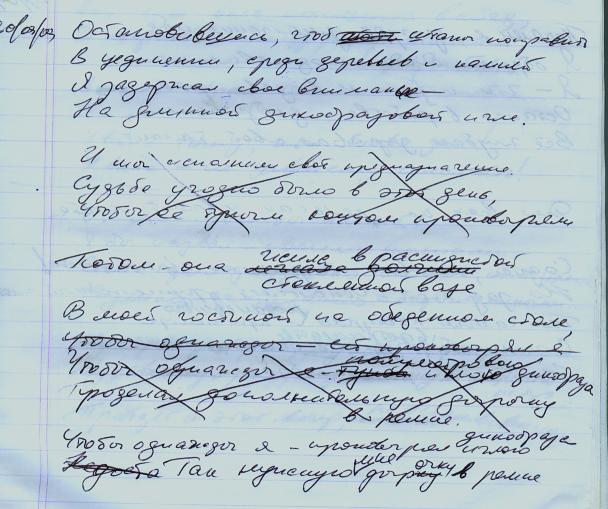 Остановившись, чтоб штаны поправить
В уединении, среди деревьев и камней
Я задержал свое внимание
На длинной дикобразовой игле.
И мы исполнили своё предназначение.
Судьбе угодно было в этот день,
Чтобы ее тупым концом проковырял
Потом она жила в расписной
стеклянной вазе
В моей гостиной на обеденном столе,
Чтобы однажды ей проковырял я
Чтобы однажды я иглою дикобраза
Проделал дополнительную дырочку
в ремне.
Чтобы однажды я проковырял иглою дикобраза
Так нужную мне дырочку в ремне